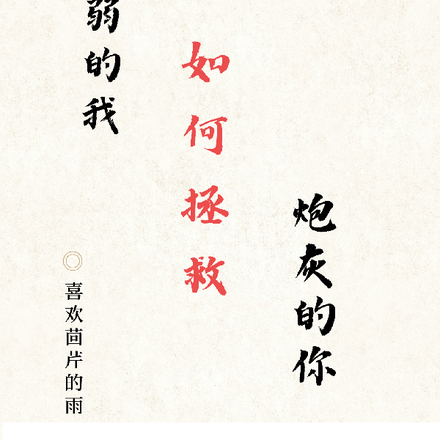 弱的我
如何拯救
炮灰的你
喜欢茴片的雨